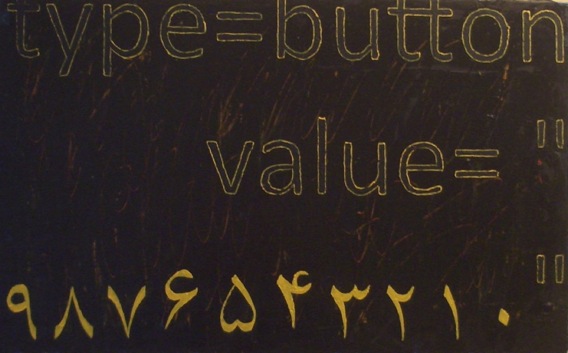 type=button
value= "
۹۸۷۶۵۴۳۲۱۰ "